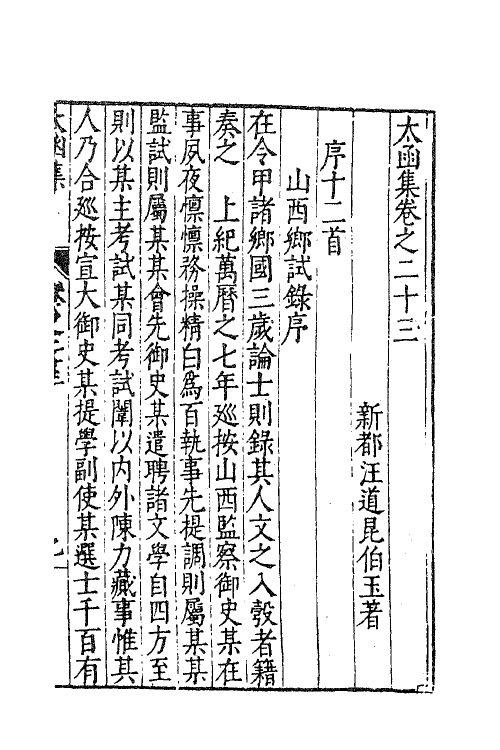 太函集卷之二十三
新都汪道昆伯玉著
序十二首
山西鄉試錄序
在令甲諸鄉國三歲論士則錄其人文之入彀者籍
奏之　上紀萬曆之七年廵按山西監察御史某在
事夙夜懔懔務操精白爲百執事先提調則屬某某
監試則屬某某會先御史某遣聘諸文學自四方至
則以某主考試某同考試闈以內外陳力蕆事惟其
人乃合廵按宣大御史某提學副使某選士千百有
太函集